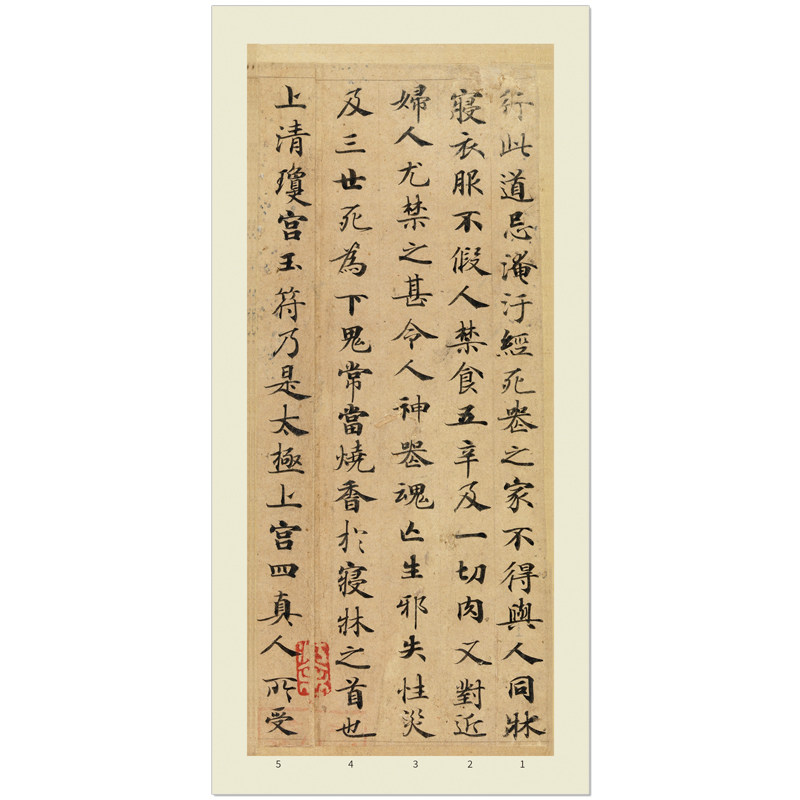 行此道忌淹汙經死喪之家不得與人同牀
寢衣服不假人禁食五辛及一切肉又對近
婦人尤禁之甚令人神喪魂亡生邪失性災
及三世死為下鬼常當燒香於寢牀之首也
上清瓊宮玉符乃是太極上宮四真人所受
5 4 3 2 1